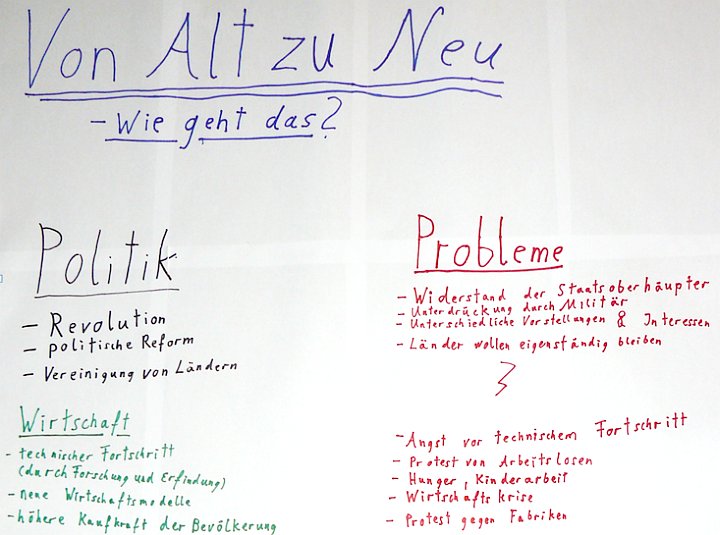 Von Alt zu Neu
- Wie geht das?
Politik
- Revolution
- politische Reform
- Vereinigung von Ländern
Wirtschaft
- technischer Fortschritt
(durch Forschung und Erfindung)
- neue Wirtschaftsmodelle
- höhere Kaufkraft der Bevölkerung
Probleme
- Widerstand der Staatsoberhäupter
- Unterdrückung durch Militär
- Unterschiedliche Vorstellungen & Interessen
- Länder wollen eigenständig bleiben
- Angst vor technischem Fortschritt
- Protest von Arbeitslosen
- Hunger, Kinderarbeit
- Wirtschaftskrise
- Protest gegen Fabriken